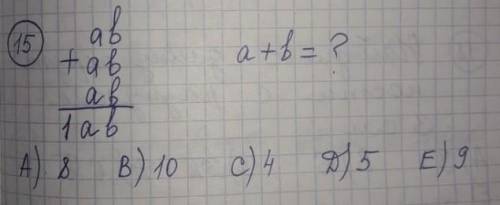 15
ab
+ab a+b=?
ab
1ab
A) 8 B) 10 C) 4 D) 5 E) 9